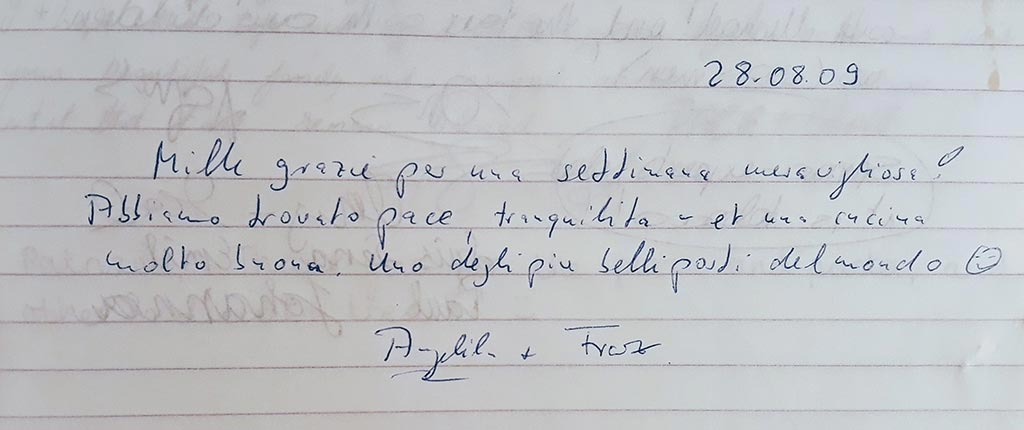 28.08.09
Mille grazie per una settimana meravigliosa!
Abbiamo trovato pace, tranquilita - et una cucina
molto buona. Uno degli piu belli posti del mondo ☺
Angelika + Franz